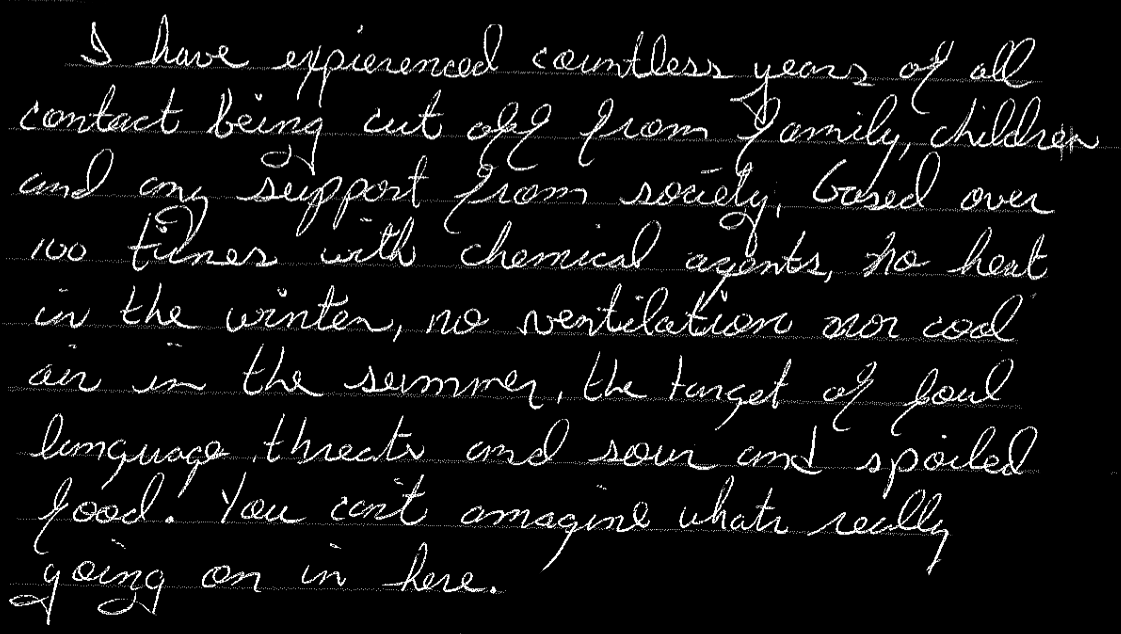 I have expierenced countless years of all
contact being cut off from family, children
and any support from society, Gased over
100 times with chemical agents, no heat
in the winter, no ventilation nor cool
air in the summer, the target of foul
language, threats and sour and spoiled
food. You can't amagine whats really
going on in here.